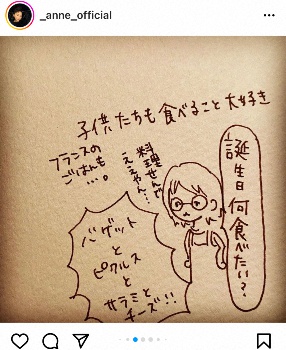 _anne_official
子供たちも食べること大好き
誕生日何食べたい？
料理せんや
ええやん…
フランスの
ごはんも…。
バゲット
と
ピクルス
と
サラミと
チーズ!!